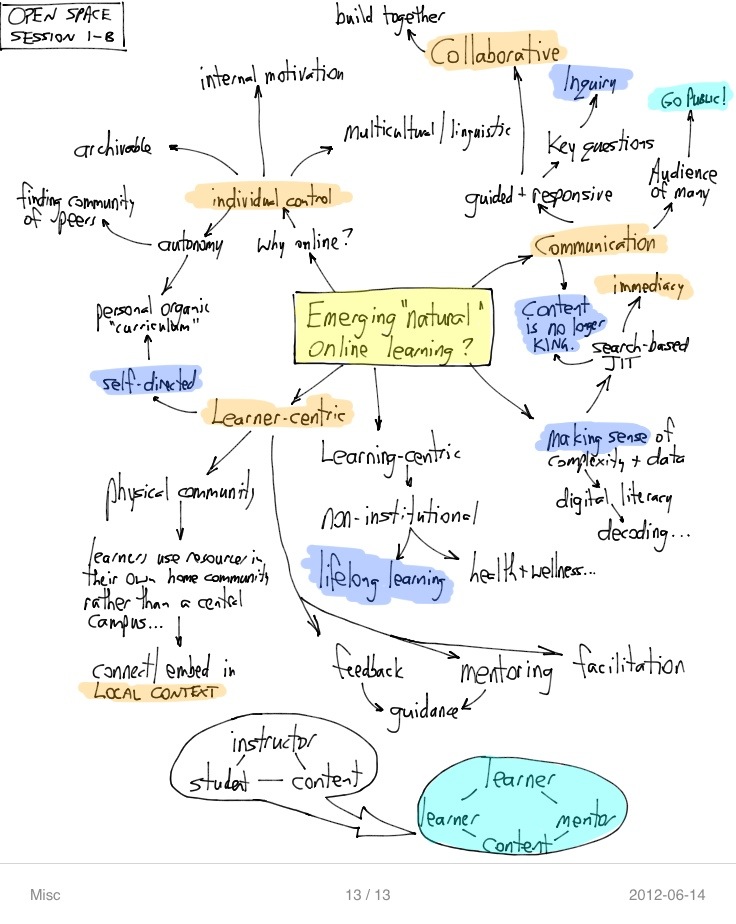 OPEN SPACE
SESSION 1-B
build together
Collaborative
internal motivation
Inquiry
GO PUBLIC!
archivable
Multicultural/linguistic
Key questions
Audience
of many
finding community
of peers
individual control
guided + responsive
autonomy
why online?
Communication
immediacy
personal organic
"curriculum"
Emerging "natural"
Online learning?
Content
is no longer
KING.
search-based
JIT
self-directed
Learner-centric
Making sense of
complexity + data
Learning-centric
physical community
digital literacy
decoding...
non-institutional
learners use resources in
their own home community
rather than a central
campus...
lifelong learning
health + wellness...
connect/embed in
LOCAL CONTEXT
feedback
mentoring
facilitation
guidance
instructor
student — content
learner
learner
mentor
content
Misc
13 / 13
2012-06-14